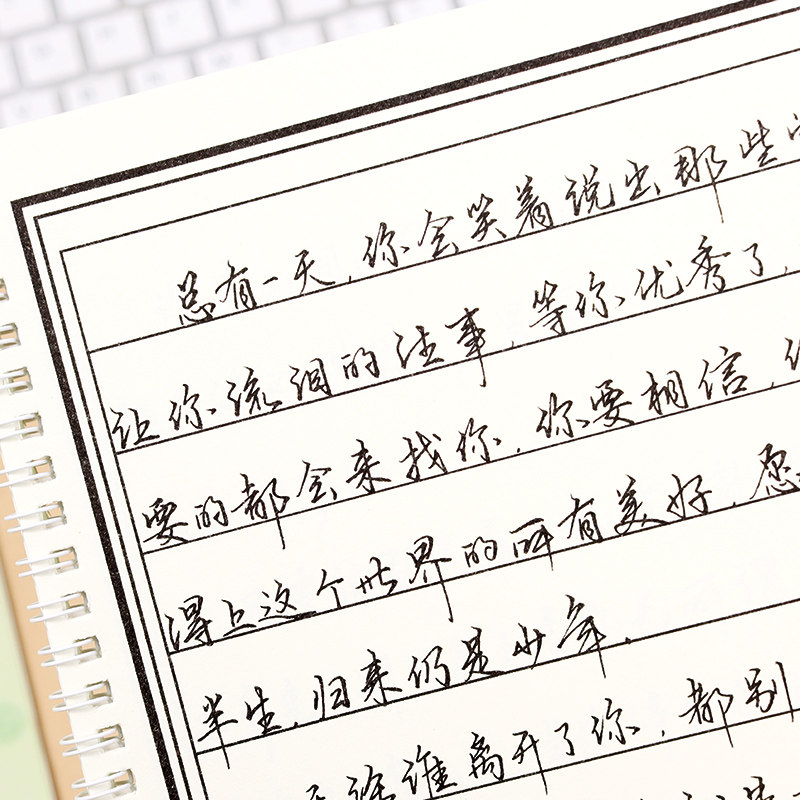 总有一天,你会笑着说出那些
让你流泪的往事,等你优秀了,
要的都会来找你,你要相信,你
得上这个世界的所有美好,愿
半生,归来仍是少年.
谁离开了你,都别